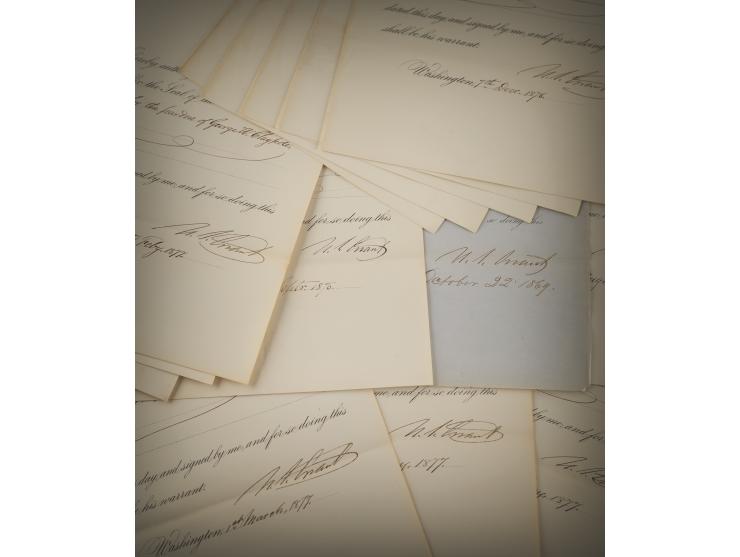 dated this day, and signed by me, and for so doing
shall be his warrant.
Washington, 7th Decr. 1876.
U. S. Grant
hereby auth
the Seal of m
the pardon of George
ed by me, and for so doing this
U. S. Grant
Feby. 1872
nd for so doing this
U. S. Grant
187
so doing this
U. S. Grant
October 22d 1869.
day, and signed by me, and for so doing this
his warrant.
U. S. Grant
Washington, 1st March, 1877.
me, and for so doing this
U. S. Grant
1877.
by me, and for
U. S.
1877.